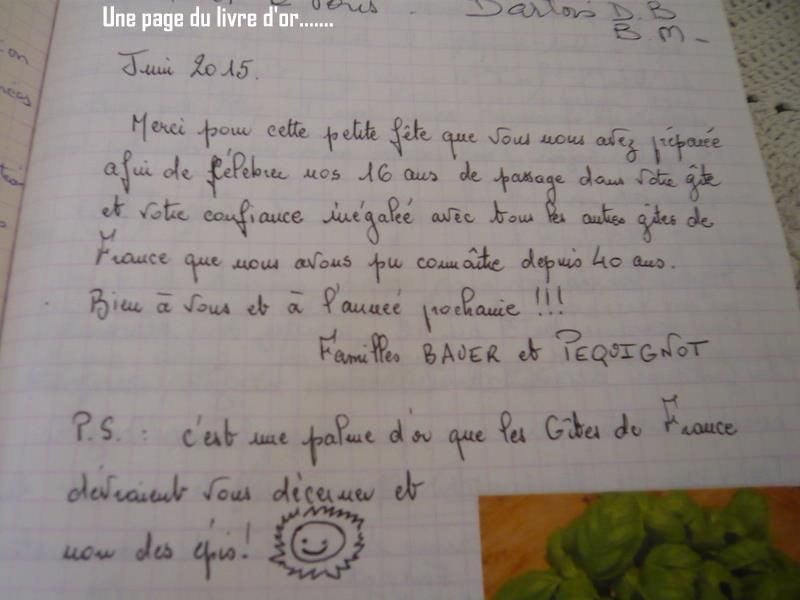 Une page du livre d'or.......
Dartois D.B
B.M-
Juin 2015.
Merci pour cette petite fête que vous nous avez préparée
afin de célébrer nos 16 ans de passage dans votre gîte
et votre confiance inégaleé avec tous les autres gîtes de
France que nous avons pu connaître depuis 40 ans.
Bien à vous et à l'anneé prochaine !!!
Familles BAUER et PEQUIGNOT
P.S. : c'est une palme d'or que les Gîtes de France
devraient vous décerner et
non des épis!